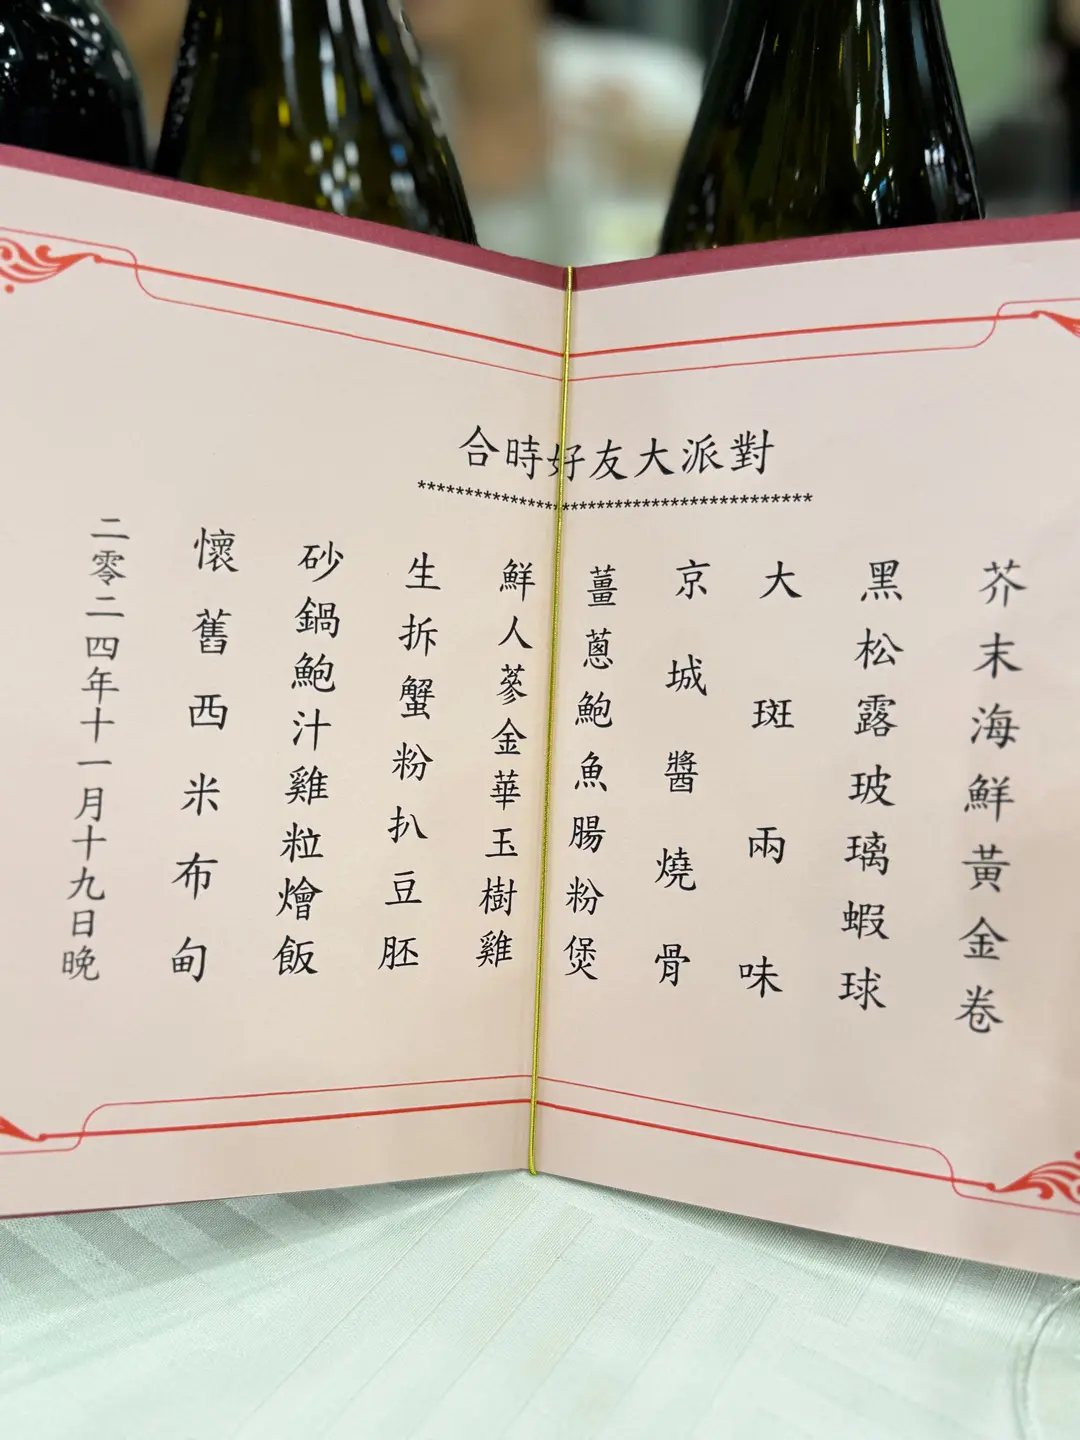 合時好友大派對
****************************************
芥末海鮮黃金卷
黑松露玻璃蝦球
大斑兩味
京城醬燒骨
薑蔥鮑魚腸粉煲
鮮人蔘金華玉樹雞
生拆蟹粉扒豆胚
砂鍋鮑汁雞粒燴飯
懷舊西米布甸
二零二四年十一月十九日晚